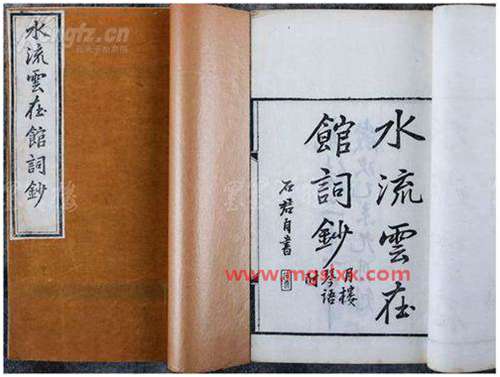 水流雲在館詞鈔
水流雲在
館詞鈔
月樓
琴語
附
石君自書
www.mgslxx.com